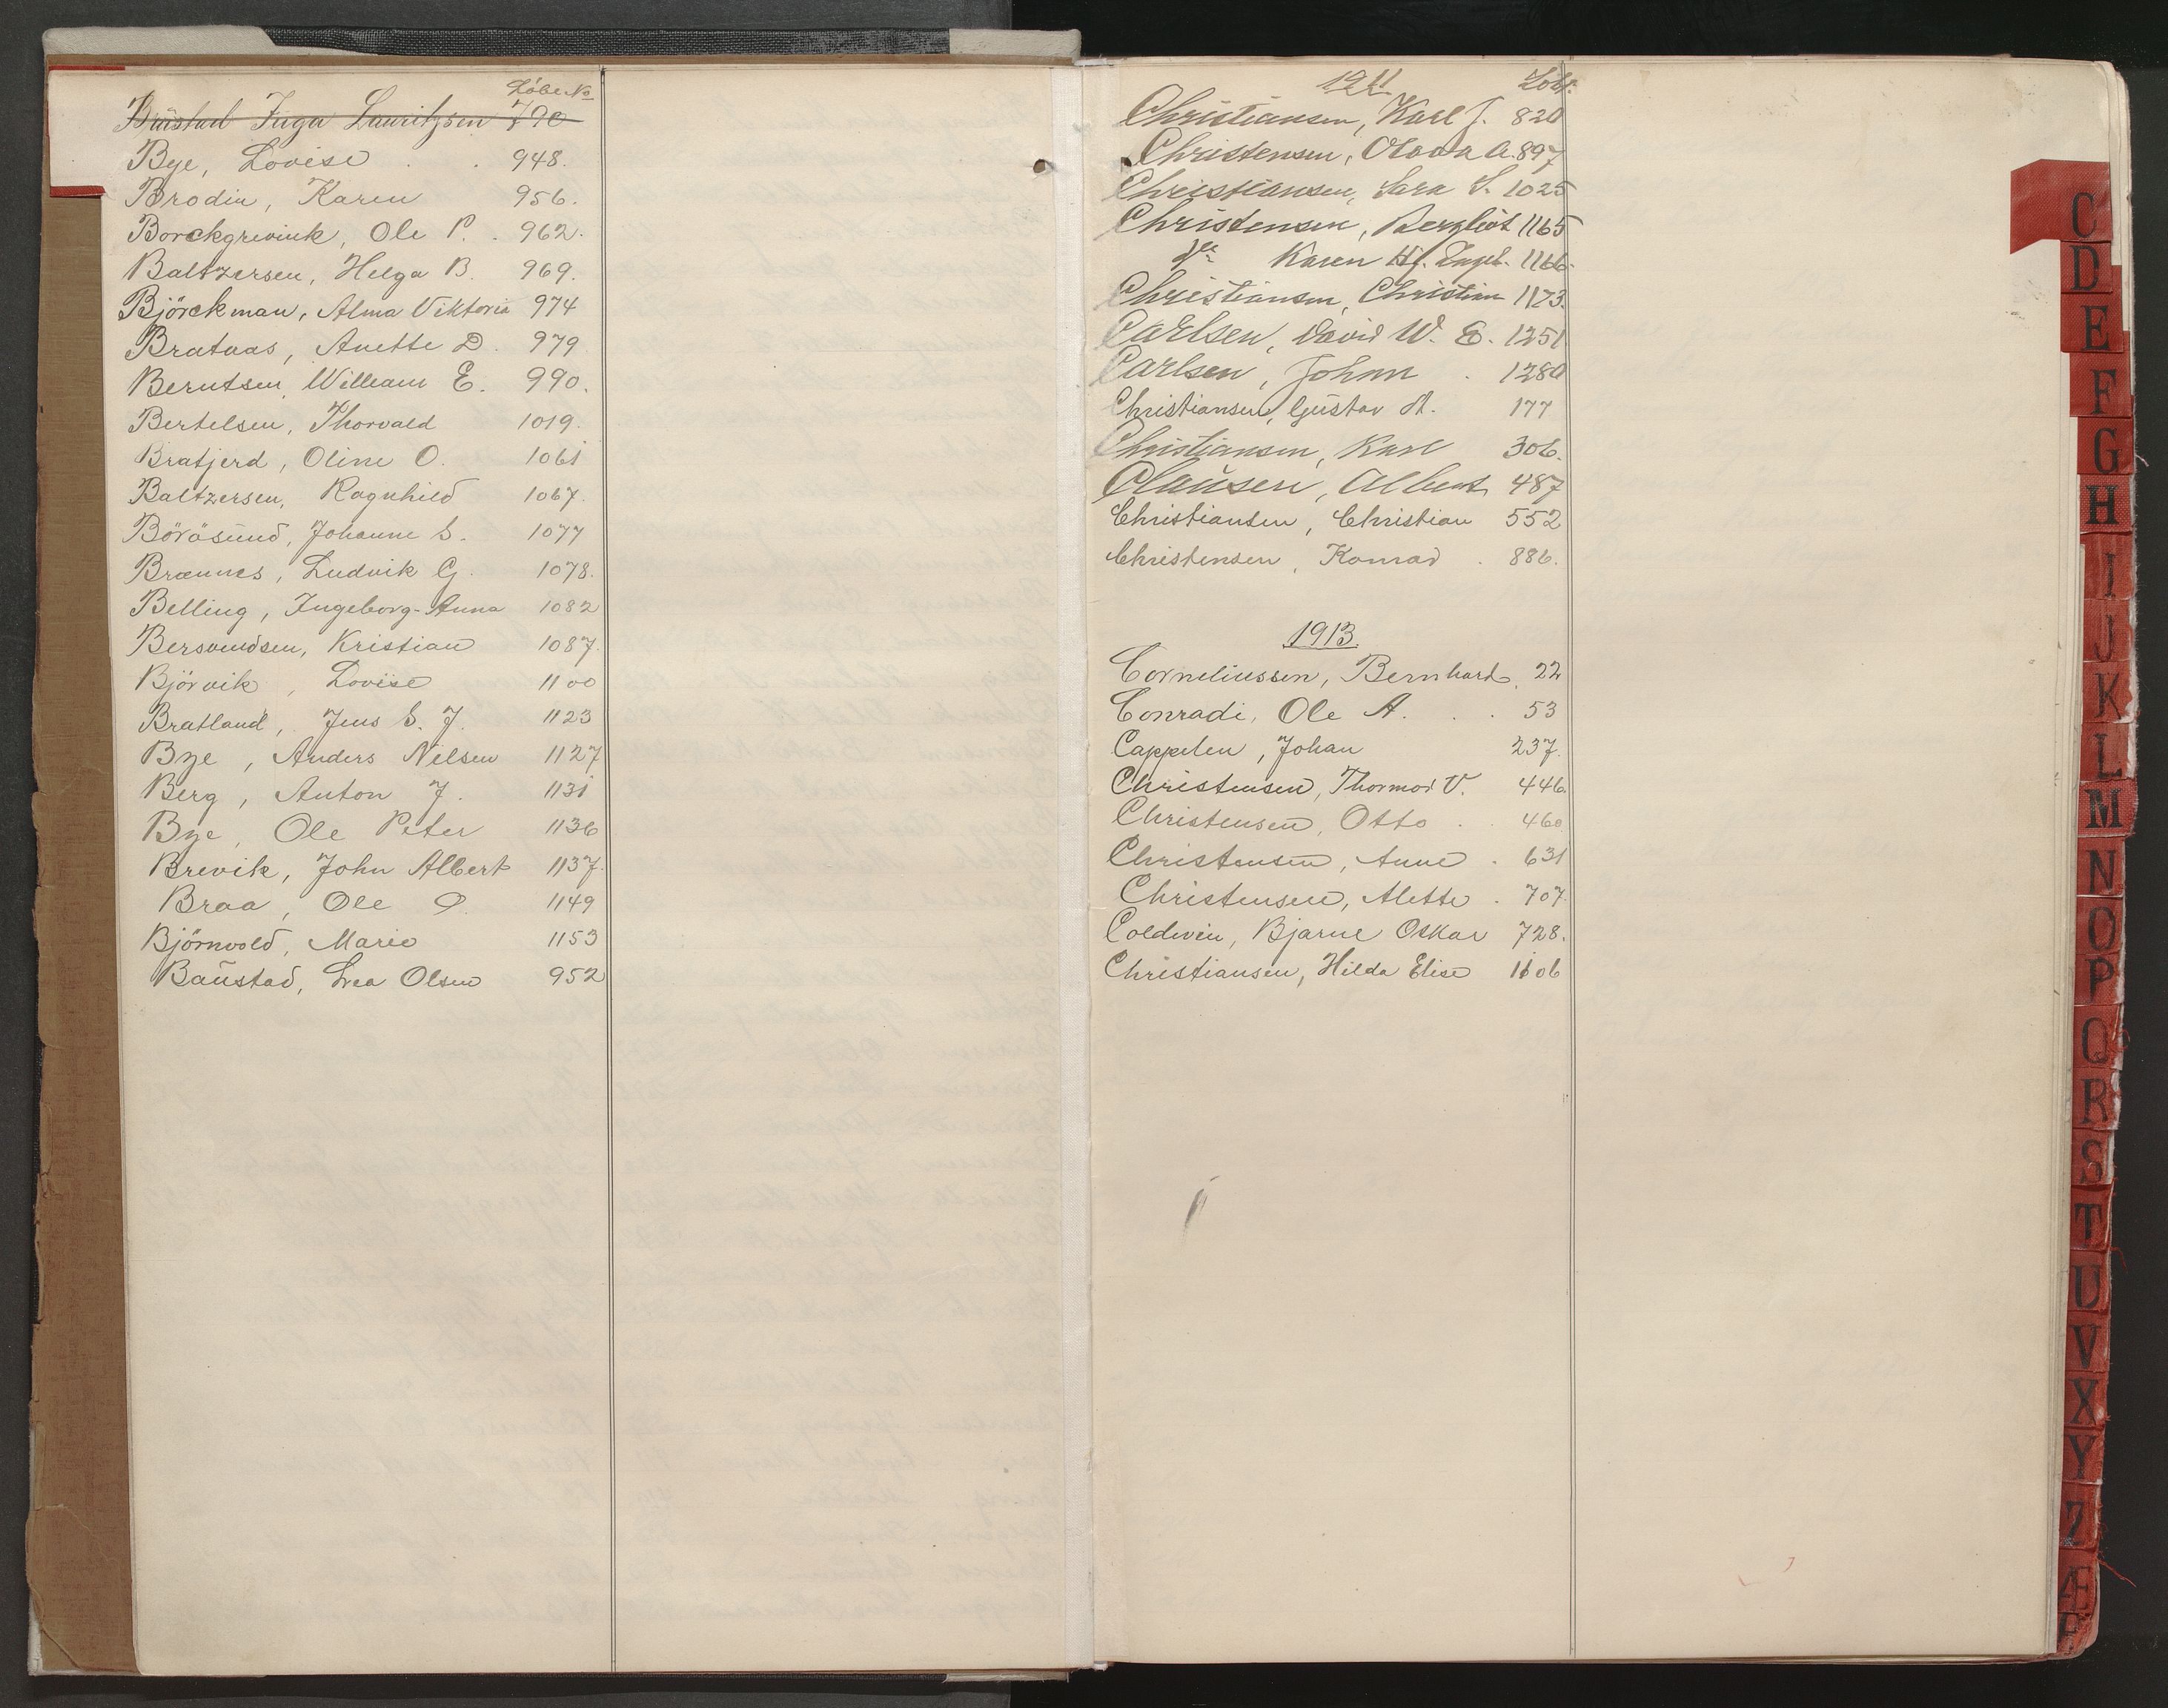 Løbe No
Baustad Inga Lauritzsen 790
Bye, Lovise . . 948.
Brodin, Karen 956.
Borckgrevink, Ole P. . 962.
Baltzersen, Helga B. 969.
Björckman, Alma Viktoria 974
Brataas, Anette D. 979
Berntsen, William E. 990.
Bertelsen, Thorvald 1019.
Bratjerd, Oline O. 1061
Baltzersen, Ragnhild 1067.
Börösund, Johanne S. 1077
Brænnes, Ludvik G. 1078.
Belling, Ingeborg-Anna 1082
Bersvendsen, Kristian 1087.
Björvik, Lovise 1100
Bratland, Jens S. J. 1123
Bye, Anders Nilsen 1127
Berg, Anton J. 1131
Bye, Ole Peter 1136
Brevik, John Albert 1137.
Braa, Ole P. 1149
Björnvold, Marie 1153
Baustad, Lea Olsen 952
1911 Løbt.
Christiansen, Karl J. 820
Christensen, Olava A. 897
Christiansen, Sara S. 1025
Christensen, Bergliot 1165
do Karen Hj. Engel. 1166.
Christiansen, Christian 1173.
Carlsen, David W. E. 1251
Carlsen, Johan . 1280
Christiansen, Gustav A. 177
Christiansen, Karl 306.
Clausen, Albert 487
Christiansen, Christian 552
Christensen, Konrad . 886.
1913.
Corneliussen, Bernhard. 22
Conradi, Ole A. . . 53
Cappelen, Johan 237.
Christensen, Thormod V. 446.
Christensen, Otto . . 460
Christensen, Anne . 631
Christensen, Alette . 707.
Coldevin, Bjarne Oskar 728.
Christiansen, Hilda Elise 1106
C
D
E
F
G
H
I
J
K
L
M
N
O
P
Q
R
S
T
U
V
X
Y
Z
Æ